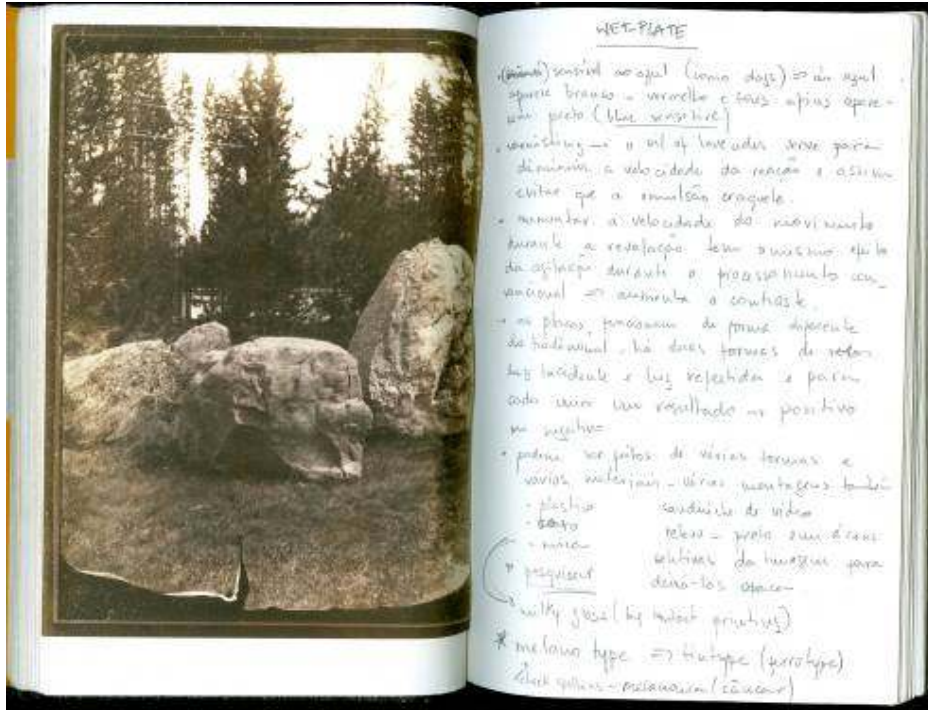 WET-PLATE
sensível ao azul (como dags) => um azul
aparece branco - vermelho e apare-
preto (blue sensitive)
varnishing - o oil of lavender serve para
diminuir a velocidade da reação e assim
evitar que a emulsão craquele.
aumentar a velocidade do movimento
durante a revelação tem o mesmo efeito
da agitação durante o processamento con-
vencional => aumenta o contraste.
as placas funcionam de forma diferente
do tradicional. há duas formas de
luz incidente e luz refletida e para
cada uma um resultado no positivo
no negativo
podem ser feitos de várias formas e
varios materiais - várias montagens também
- plástico sanduíche de vidro
- preto em
- mica da imagem para
* pesquisar deixá-los opacos
milky glass (by contact printing)
* melano type => tintype (ferrotype)
check spelling -